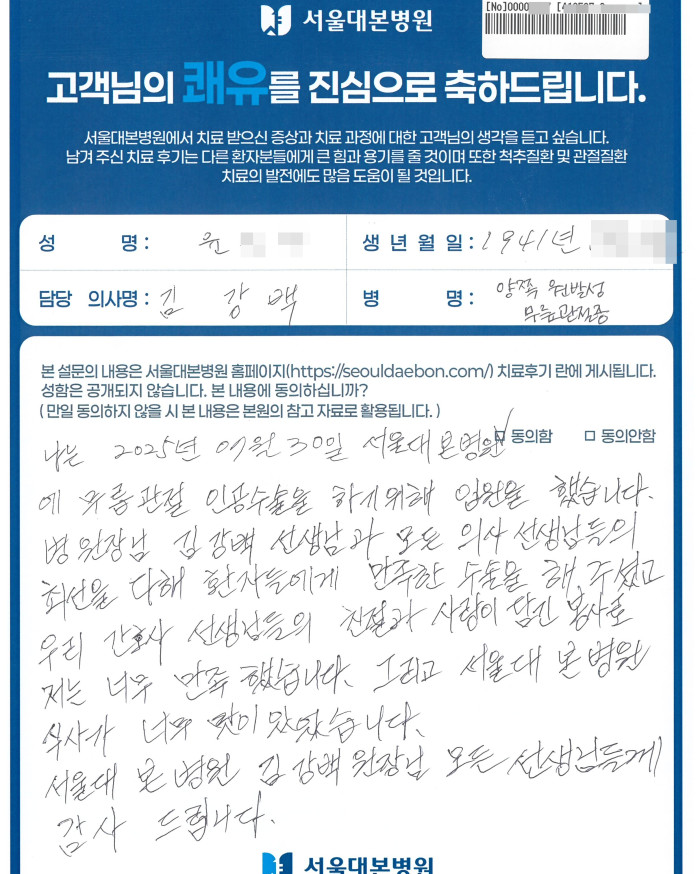 [No]0000
서울대본병원
고객님의 쾌유를 진심으로 축하드립니다.
서울대본병원에서 치료 받으신 증상과 치료 과정에 대한 고객님의 생각을 듣고 싶습니다.
남겨 주신 치료 후기는 다른 환자분들에게 큰 힘과 용기를 줄 것이며 또한 척추질환 및 관절질환
치료의 발전에도 많음 도움이 될 것입니다.
성 명 : 윤
생 년 월 일 : 1941년
담당 의사명 : 김 강백
병 명 : 양쪽 원발성
무릎관절증
본 설문의 내용은 서울대본병원 홈페이지(https://seouldaebon.com/) 치료후기 란에 게시됩니다.
성함은 공개되지 않습니다. 본 내용에 동의하십니까?
( 만일 동의하지 않을 시 본 내용은 본원의 참고 자료로 활용됩니다. )
동의함 동의안함
나는 2025년 09월 30일 서울대 본병원
에 무릎관절 인공수술을 하기위해 입원을 했습니다.
병원장님 김강백 선생님과 모든 의사 선생님들의
최선을 다해 환자들에게 만족한 수술을 해 주셨고
우리 간호사 선생님들의 친절과 사랑이 담긴 봉사로
저는 너무 만족 했습니다. 그리고 서울대 본 병원
식사가 너무 맛이 있었습니다.
서울대 본 병원 김강백 원장님 모든 선생님들게
감사 드립니다.
서울대본병원